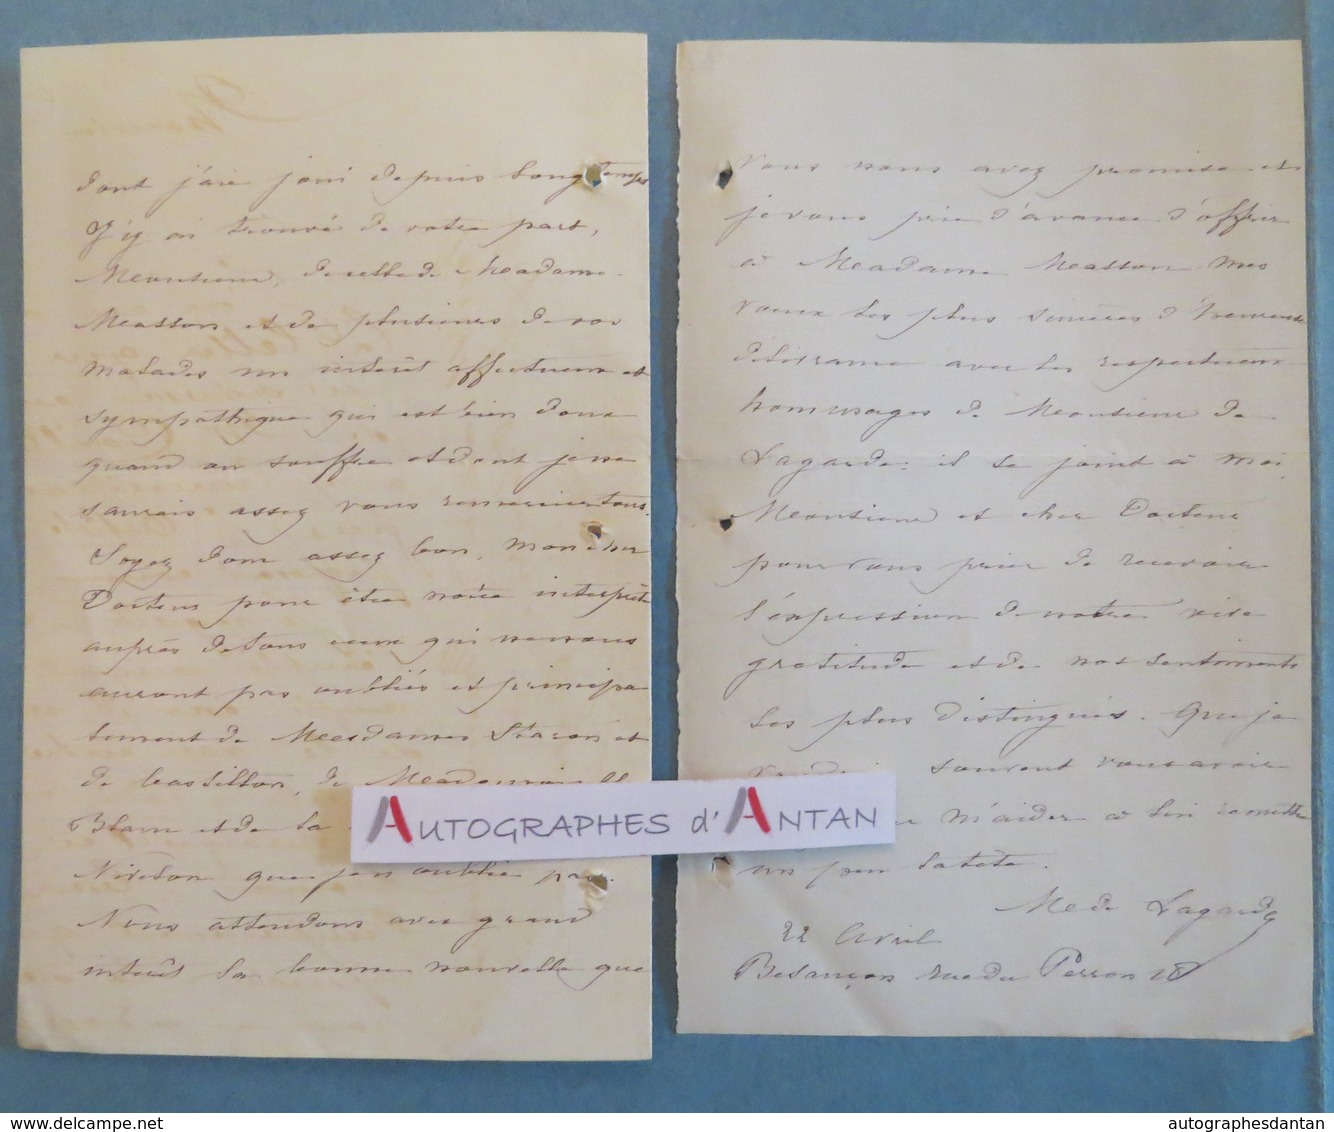 dont j'aie joui depuis longtemps
J'y ai trouvé de votre part,
Monsieur, de celle de Madame
Masson et de plusieurs de vos
malades un intérêt affectueux et
sympathique qui est bien doux
quand on souffre et dont je ne
saurais assez vous remercier tous.
Soyez donc assez bon, mon cher
Docteur pour être notre interprète
auprès de tous ceux qui ne nous
auront pas oubliés et principa
lement de Mesdames et
de de
Blanc et de la
que je n'oublie pas.
Nous attendons avec grand
intérêt la bonne nouvelle que
vous nous avez promise et
je vous prie d'avance d'offrir
à Madame Masson mes
vœux les plus sincères d'heureuse
délivrance avec les respectueux
hommages de Monsieur de
Lagarde; il se joint à moi
Monsieur et cher Docteur
pour vous prier de recevoir
l'expression de notre vive
gratitude et de nos sentiments
les plus distingués. Que je
souvent vous avoir
m'aider à lui remettre
un peu la tête.
Me de Lagarde
22 Avril
Besançon rue du Perron 18
AUTOGRAPHES d'ANTAN
autographesdantan